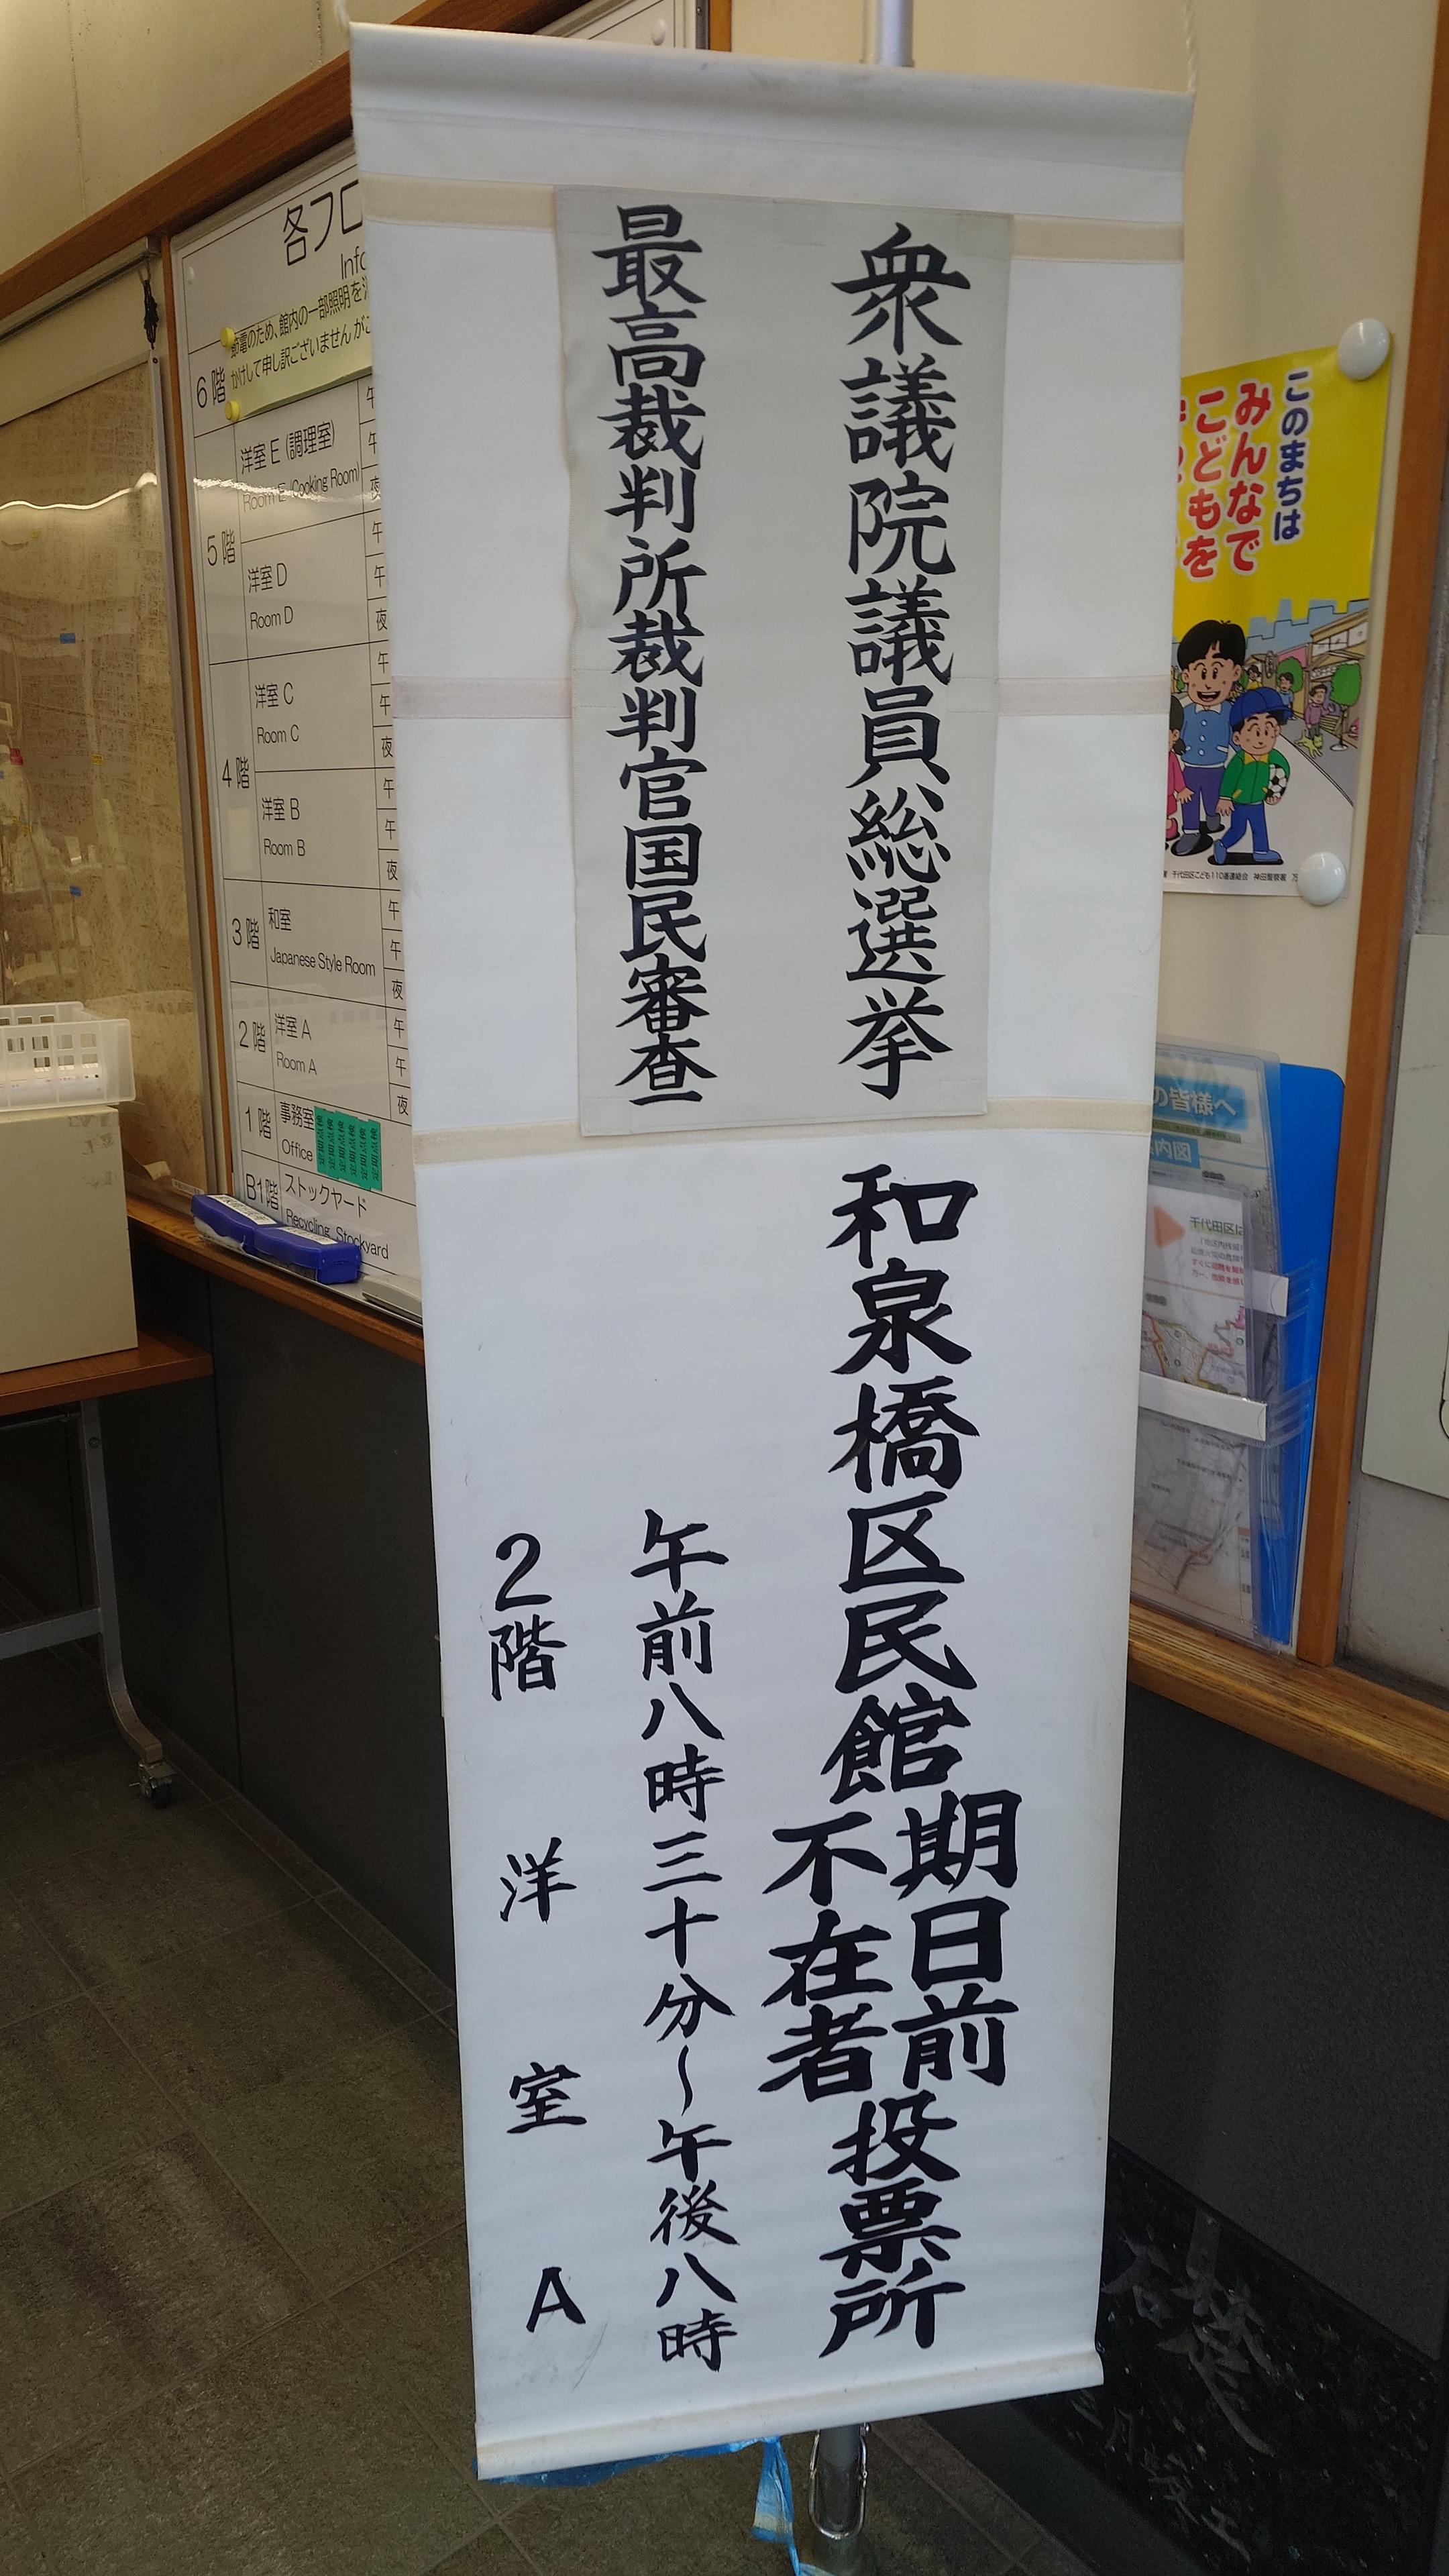 衆議院議員総選挙
最高裁判所裁判官国民審査
和泉橋区民館
期日前
不在者
投票所
午前八時三十分～午後八時
2階 洋室A
各フロ
Info
節電のため、館内の一部照明を
かけして申し訳ございませんが
6階
5階
洋室E(調理室)
Room E (Cooking Room)
洋室D
Room D
4階
洋室C
Room C
洋室B
Room B
3階
和室
Japanese Style Room
2階
洋室A
Room A
1階
事務室
Office
B1階
ストックヤード
Recycling Stockyard
午
午
夜
午
午
夜
午
午
夜
午
午
夜
午
午
夜
午
午
夜
このまちは
みんなで
こどもを
千代田区こども110番連絡会 神田警察署
の皆様へ
内図
千代田区は